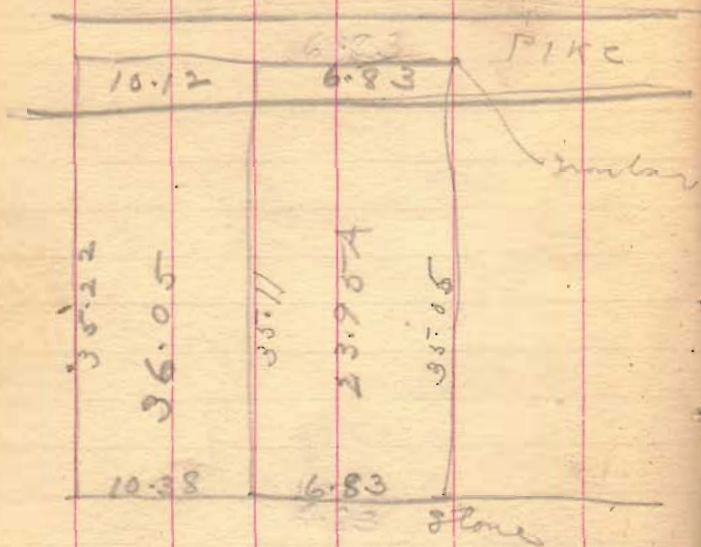 PIKE
10.12
6.83
Iron bar
35.22
36.05
35.11
23.95 A
35.05
10.38
6.83
stone